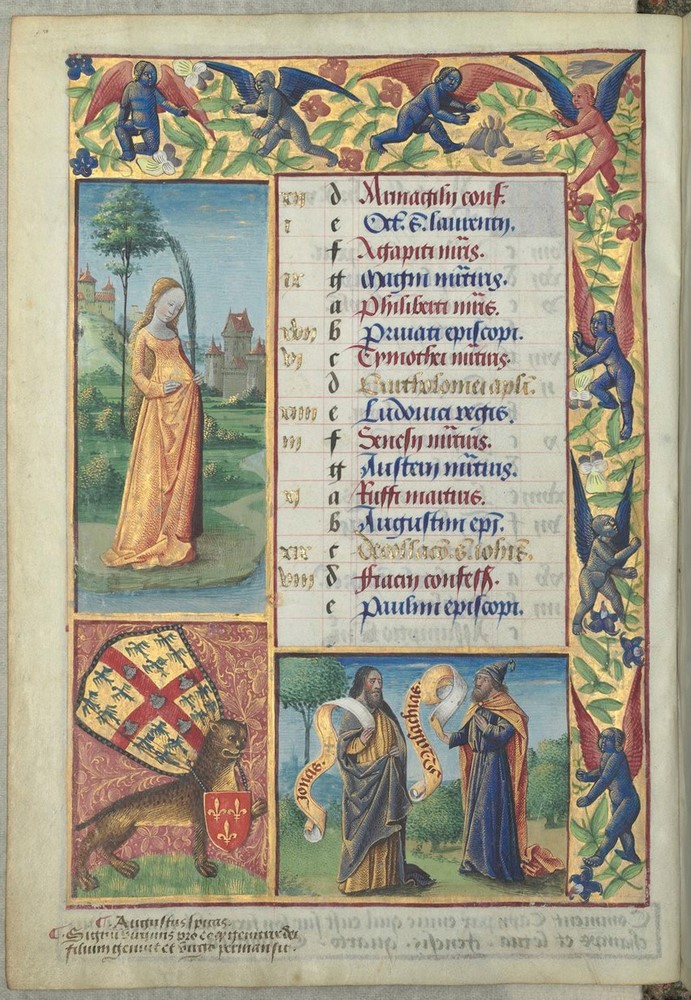 xii d Armagilij conf.
i e Oct. s. laurentij.
f Agapiti mris.
ix g Magni mrtiris.
a Philiberti mris.
xvii b Privati episcopi.
vi c Tymothei mrtiris.
d Bartholomei apli.
xiiii e Ludovici regis.
iii f Senesij mrtiris.
g Austerij mrtiris.
xi a Ruffi martiris.
b Augustini epi.
xix c Decollacio s. iohis.
viii d ffiacrij confess.
e Paulini episcopi.
Jonas.
Zacharias
Augustus spicas.
Signum virginis pro eo quod genitrix dei
filium genuit et virgo permansit.